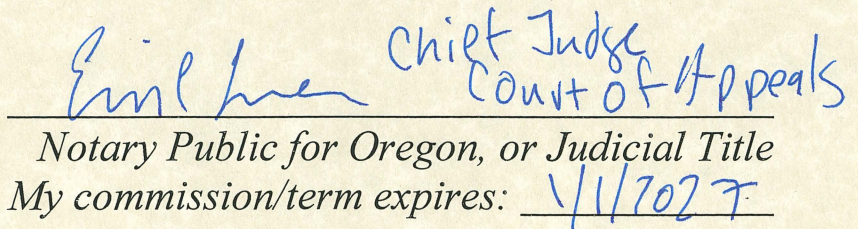 Chief Judge
Court of Appeals
Notary Public for Oregon, or Judicial Title
My commission/term expires: 1/1/2027